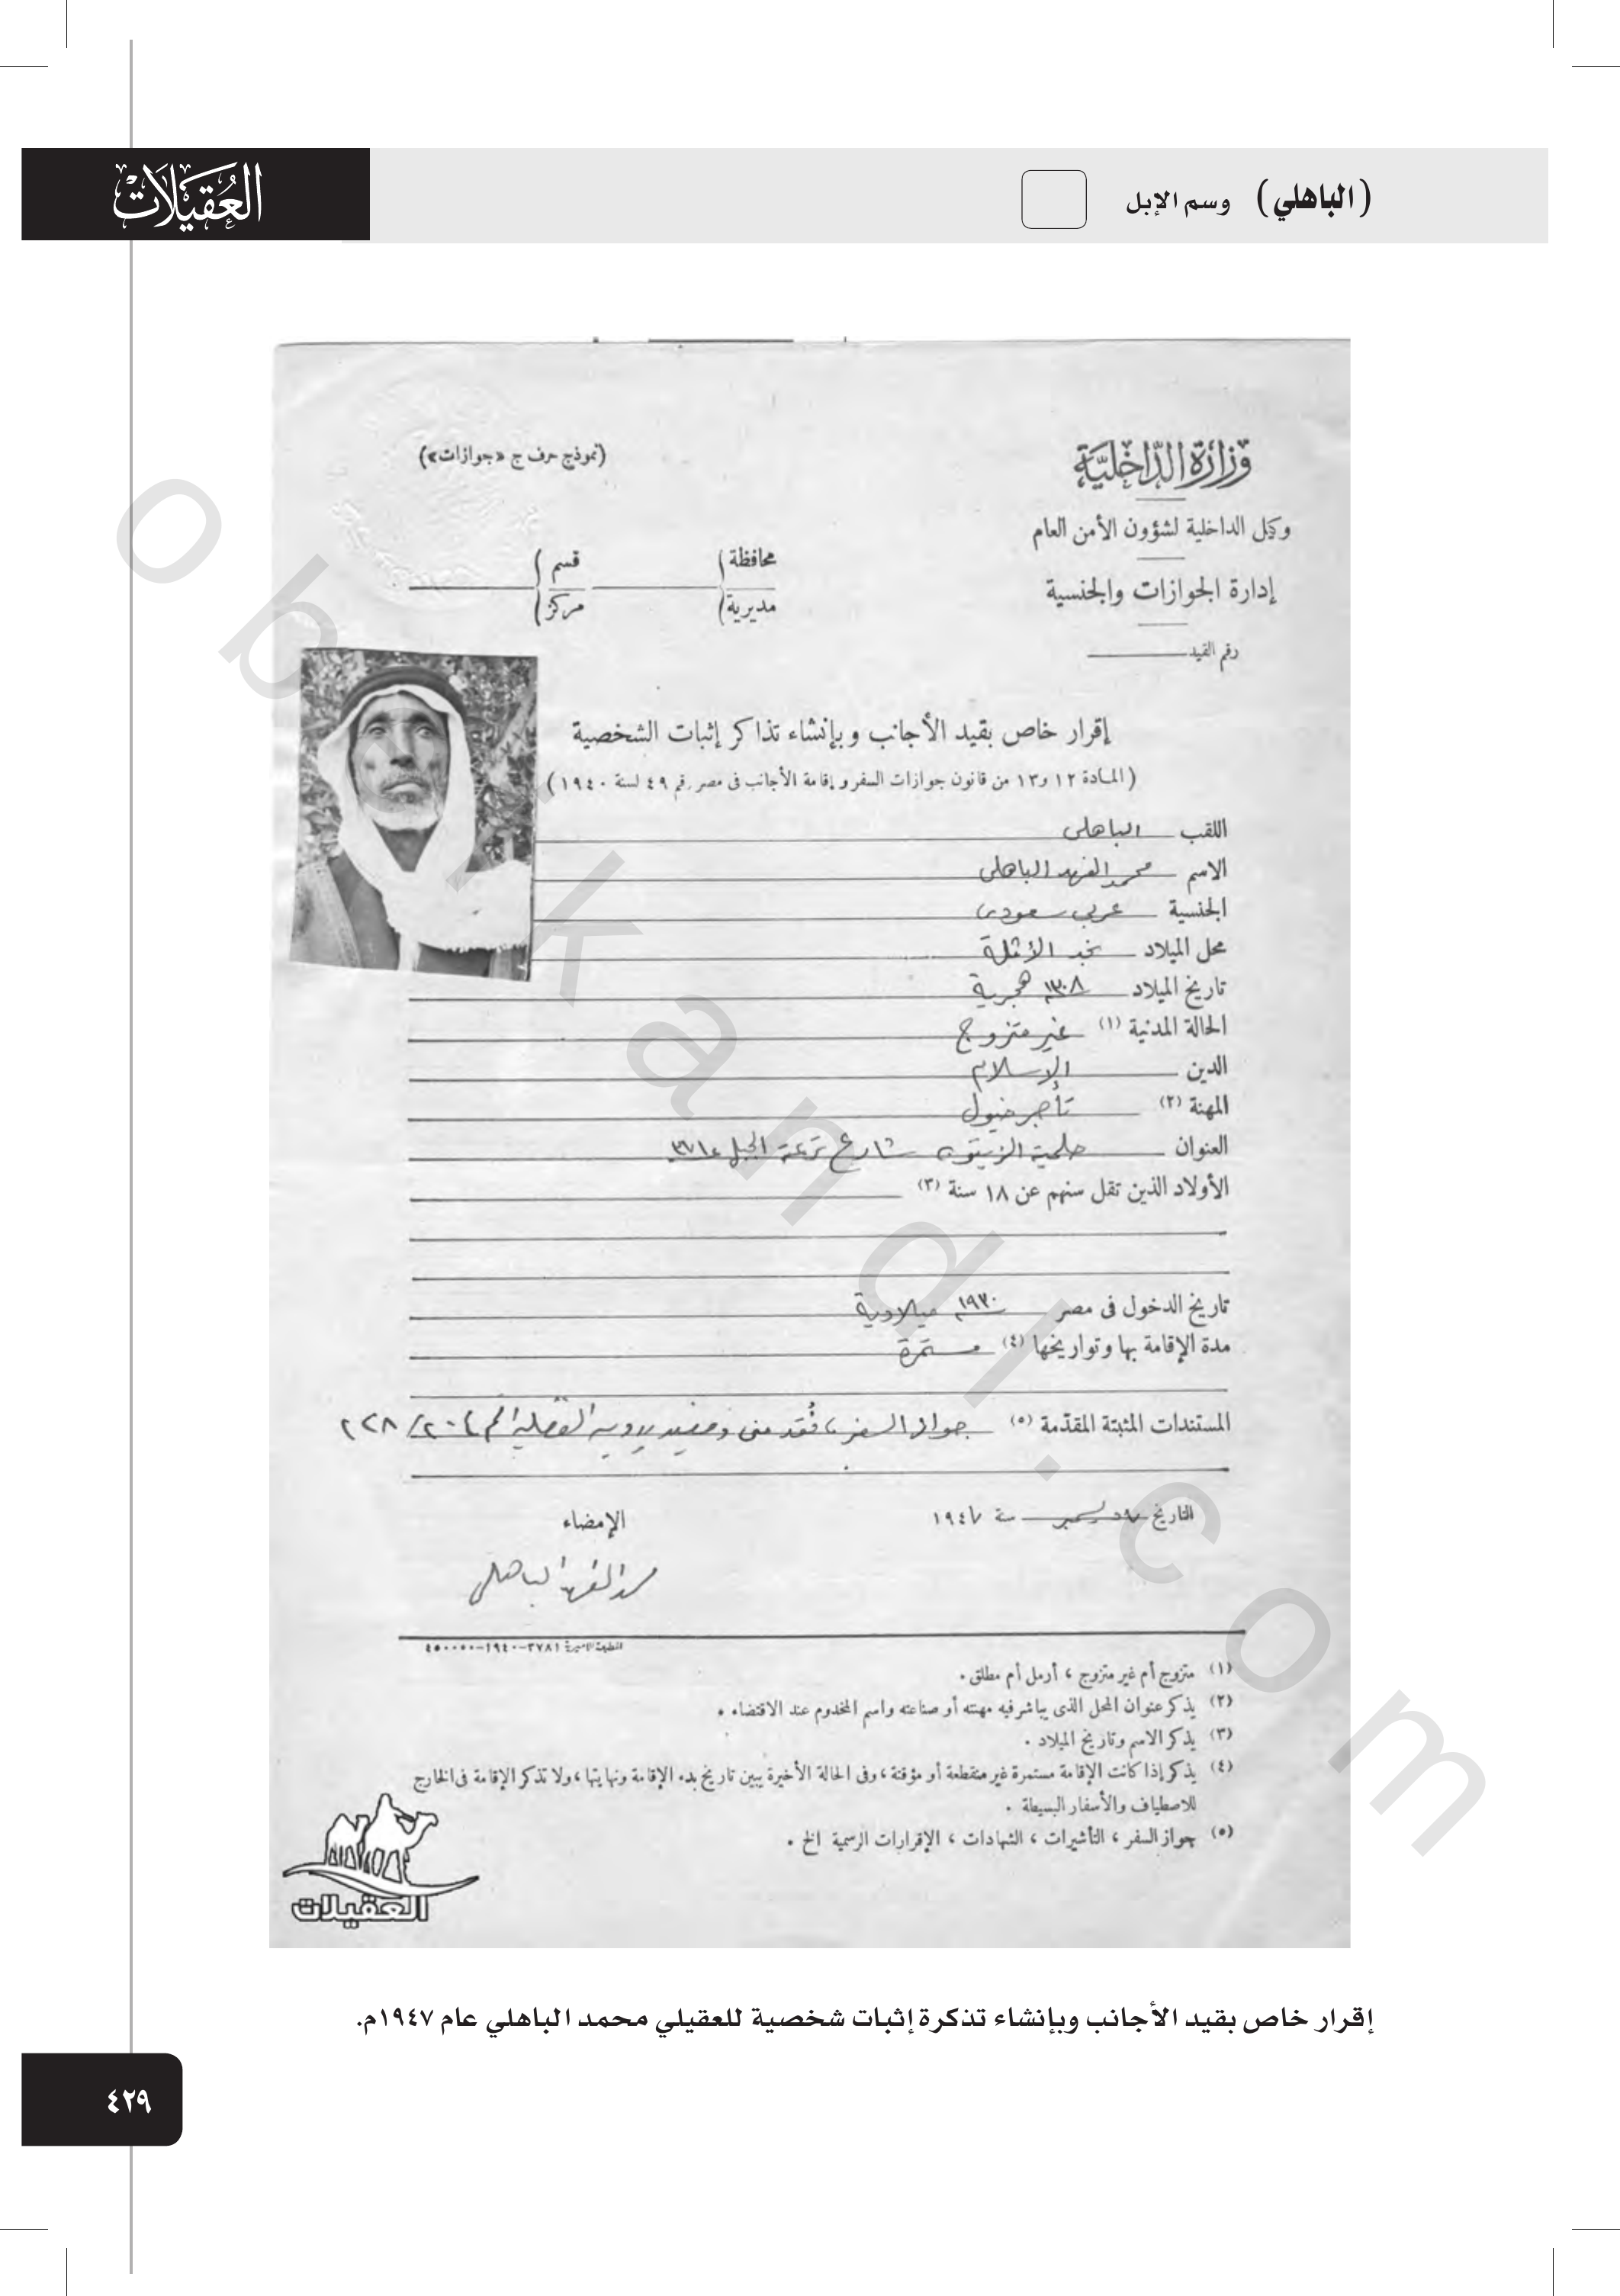 العقيلات
(الباهلي) وسم الإبل
وزارة الداخلية
(نموذج حرف ج «جوازات»)
وكيل الداخلية لشؤون الأمن العام
محافظة
مديرية
قسم
مركز
إدارة الجوازات والجنسية
رقم القيد
إقرار خاص بقيد الأجانب وبإنشاء تذاكر إثبات الشخصية
(المادة ١٢ و١٣ من قانون جوازات السفر وإقامة الأجانب فى مصر رقم ٤٩ لسنة ١٩٤٠)
اللقب الباهلى
الاسم محمد الفهد الباهلى
الجنسية عربي سعودى
محل الميلاد نجد الأثلة
تاريخ الميلاد ١٣٠٨ هجرية
الحالة المدنية (١) غير متزوج
الدين الإسلام
المهنة (٢) تاجر خيول
العنوان حلمية الزيتون شارع ترعة الجبل
الأولاد الذين تقل سنهم عن ١٨ سنة (٣)
تاريخ الدخول فى مصر ١٩٣٠ ميلادية
مدة الإقامة بها وتواريخها (٤) مستمرة
المستندات المثبتة المقدمة (٥) جواز السفر فُقد منى
التاريخ ديسمبر سنة ١٩٤٧
الإمضاء
محمد الفهد الباهلى
المطبعة الأميرية ٣٧٨١-١٩٤٠-٤٥٠٠٠٠
(١) متزوج أم غير متزوج ، أرمل أم مطلق .
(٢) يذكر عنوان المحل الذى يباشر فيه مهنته أو صناعته واسم المخدوم عند الاقتضاء .
(٣) يذكر الاسم وتاريخ الميلاد .
(٤) يذكر إذا كانت الإقامة مستمرة غير منقطعة أو مؤقتة ، وفى الحالة الأخيرة يبين تاريخ بدء الإقامة ونهايتها ، ولا تذكر الإقامة فى الخارج
للاصطياف والأسفار البسيطة .
(٥) جواز السفر ، التأشيرات ، الشهادات ، الإقرارات الرسمية الخ .
العقيلات
إقرار خاص بقيد الأجانب وبإنشاء تذكرة إثبات شخصية للعقيلي محمد الباهلي عام ١٩٤٧م.
٤٢٩
obeikandl.com